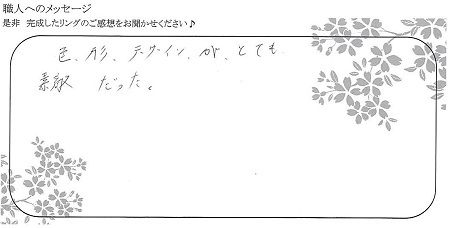 職人へのメッセージ
是非 完成したリングのご感想をお聞かせください♪
色、形、デザイン、が、とても
素敵 だった。